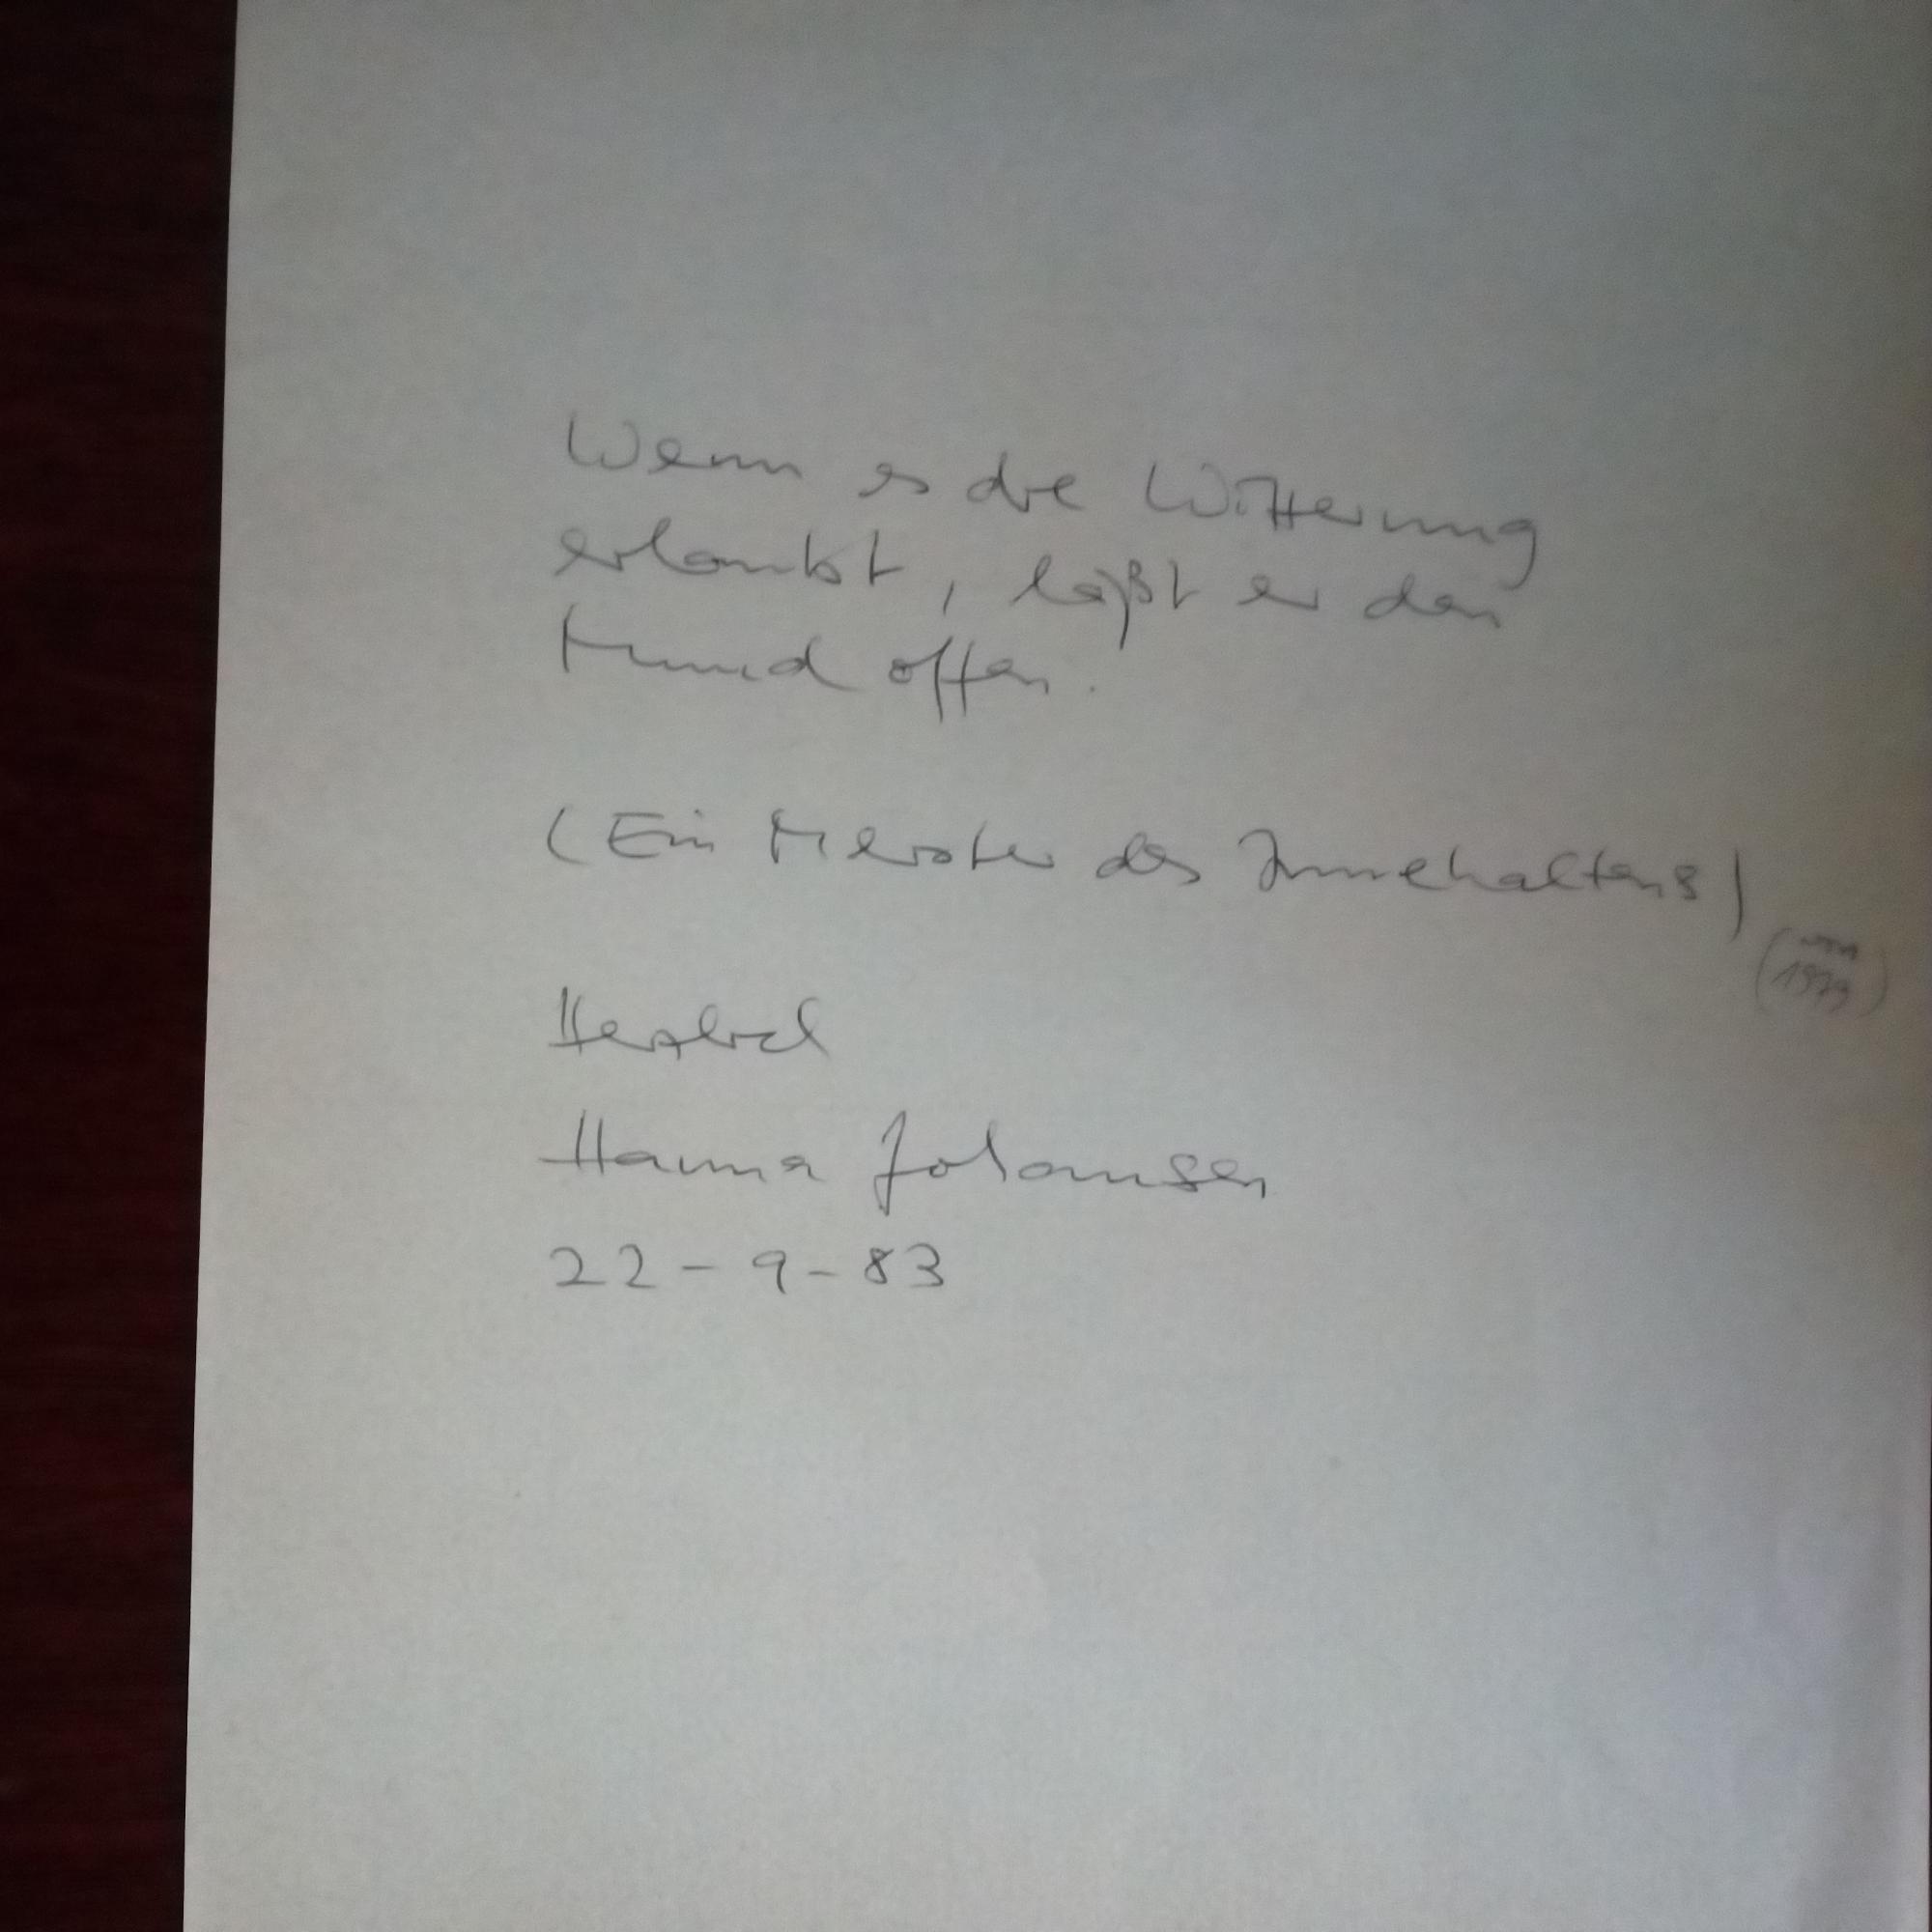 Wenn es die Witterung
erlaubt, läßt er den
Mund offen.
(Ein Meister des Innehaltens)
(von
1979)
Herzlich
Hanna Johansen
22-9-83